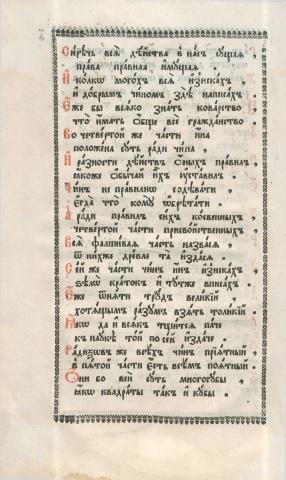 Сирѣчь всѧ̀ дѣйства в насъ сущаѧ
права правила имущаѧ .
И колкѡ могохъ всѧ̀ изискахъ ,
и добрымъ чиномъ здѣ написахъ
Еже бы всѧкѡ знать коварство ,
что имать обще всѐ гражданство
Во четвертой же части ина
положена суть ради чина ,
И разности дѣйствъ ѻныхъ правилъ ,
ꙗкоже обычай ихъ уставилъ .
Чинъ не правилнѡ содѣвати ,
Егда что кому ѡбрѣтати .
А ради правилъ сихъ косвенныхъ ,
четвертой части присвойственныхъ ,
Всѧ̀ фалшиваѧ часть назвасѧ ,
ѿ нихже древле та издасѧ .
Сей же части чинъ инъ изискахъ ,
ѕѣлѡ кратокъ и тутже вписахъ .
Еже ѿнѧти трудъ великій ,
хотѧщымъ разумъ взѧть толикій
Ꙗкѡ да и всѧкъ тщитсѧ паче
къ наукѣ той по сей издаче .
Радиѯовъ же всѣхъ чинъ прїѧтный
в пѧтой части есть всѣмъ понѧтный
Ѻни бо вси суть многогубы ,
ꙗкѡ квадраты такъ и кубы .